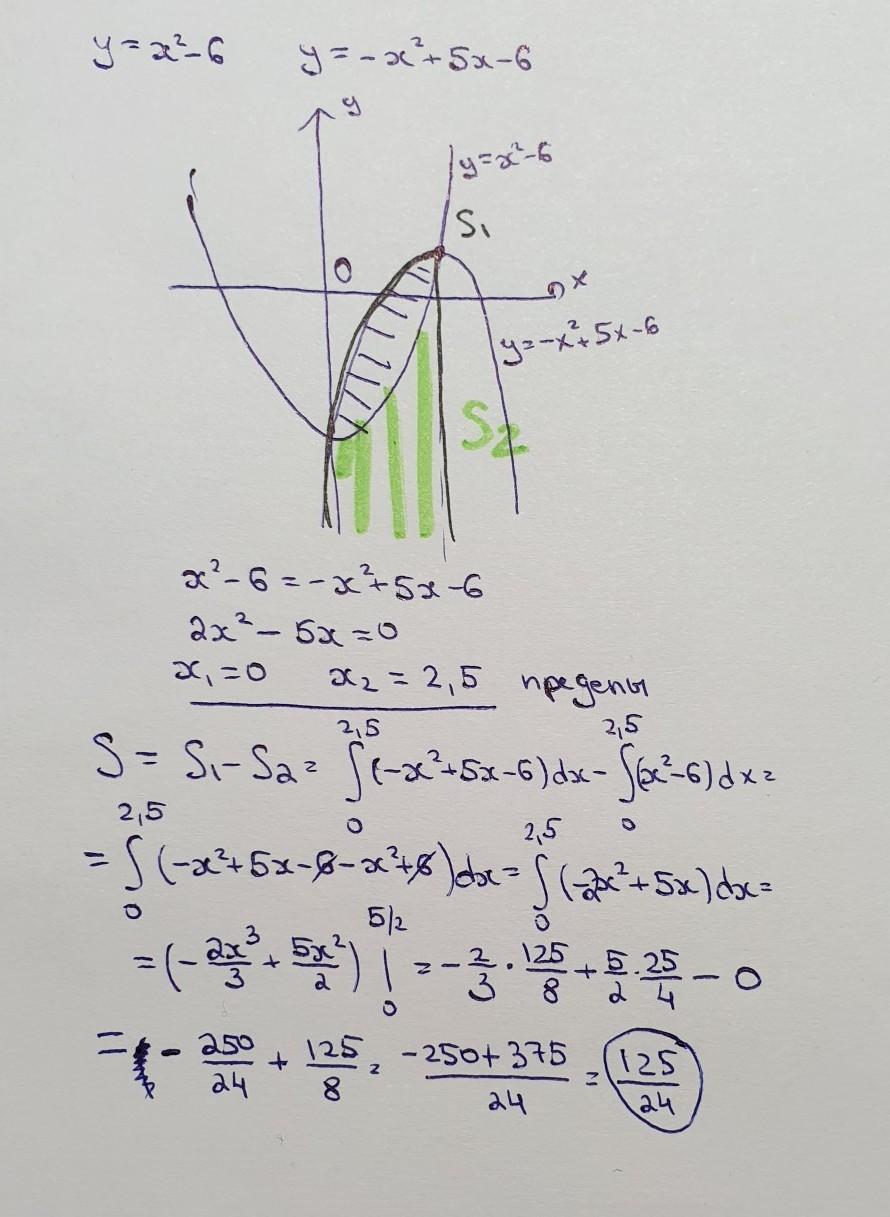 y = x² - 6    y = -x² + 5x - 6
y
y = x² - 6
S₁
0
x
y = -x² + 5x - 6
S₂
x² - 6 = -x² + 5x - 6
2x² - 5x = 0
x₁ = 0    x₂ = 2,5    пределы
S = S₁ - S₂ = ∫₀^2,5 (-x² + 5x - 6) dx - ∫₀^2,5 (x² - 6) dx =
= ∫₀^2,5 (-x² + 5x - 6 - x² + 6) dx = ∫₀^2,5 (-2x² + 5x) dx =
= (- 2x³/3 + 5x²/2) |₀^5/2 = - 2/3 · 125/8 + 5/2 · 25/4 - 0
= - 250/24 + 125/8 = (-250 + 375)/24 = 125/24